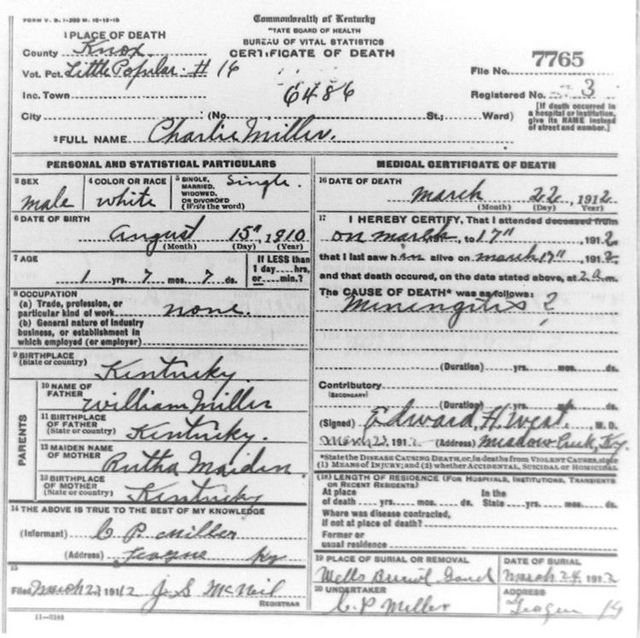 FORM V. S. 1-200 M. 10-12-10
Commonwealth of Kentucky
STATE BOARD OF HEALTH
BUREAU OF VITAL STATISTICS
CERTIFICATE OF DEATH
1 PLACE OF DEATH
County Knox
Vot. Pct. Little Popular # 16
Inc. Town
6486
File No. 7765
Registered No. 3
City (No. St.; Ward)
[If death occurred in
a hospital or institution,
give its NAME instead
of street and number.]
2 FULL NAME Charlie Miller.
PERSONAL AND STATISTICAL PARTICULARS
3 SEX
male
4 COLOR OR RACE
white
5 SINGLE,
MARRIED,
WIDOWED,
OR DIVORCED
(Write the word)
Single.
6 DATE OF BIRTH
August 15th, 1910
(Month) (Day) (Year)
7 AGE
1 yrs. 7 mos. 7 ds.
If LESS than
1 day....hrs,
or....min.?
8 OCCUPATION
(a) Trade, profession, or
particular kind of work none.
(b) General nature of industry
business, or establishment in
which employed (or employer)
9 BIRTHPLACE
(State or country)
Kentucky.
PARENTS
10 NAME OF
FATHER
William Miller
11 BIRTHPLACE
OF FATHER
(State or country)
Kentucky.
12 MAIDEN NAME
OF MOTHER
Rutha Maiden.
13 BIRTHPLACE
OF MOTHER
(State or country)
Kentucky
14 THE ABOVE IS TRUE TO THE BEST OF MY KNOWLEDGE
(Informant) C. P. Miller
(Address) Ky
15
Filed March 23 1912 J. S. McNeil
REGISTRAR
11-3184
MEDICAL CERTIFICATE OF DEATH
16 DATE OF DEATH
March 22, 1912
(Month) (Day) (Year)
17 I HEREBY CERTIFY, That I attended deceased from
on March, to 17", 1912
that I last saw him alive on March 17", 1912
and that death occured, on the date stated above, at 2 a m.
The CAUSE OF DEATH* was as follows:
Miningitis ?
(Duration) yrs. mos. ds.
Contributory
(SECONDARY)
(Duration) yrs. mos. ds.
(Signed) Edward H. West, M. D.
March 23, 1912 (Address) Meadow Creek, Ky.
*State the DISEASE CAUSING DEATH, or, in deaths from VIOLENT CAUSES, state
(1) MEANS OF INJURY; and (2) whether ACCIDENTAL, SUICIDAL OR HOMICIDAL
18 LENGTH OF RESIDENCE (FOR HOSPITALS, INSTITUTIONS, TRANSIENTS
OR RECENT RESIDENTS)
At place
of death yrs. mos. ds.
In the
State yrs. mos. ds.
Where was disease contracted,
if not at place of death?
Former or
usual residence
19 PLACE OF BURIAL OR REMOVAL
Wells
DATE OF BURIAL
March 24, 1912
20 UNDERTAKER
C. P. Miller
ADDRESS